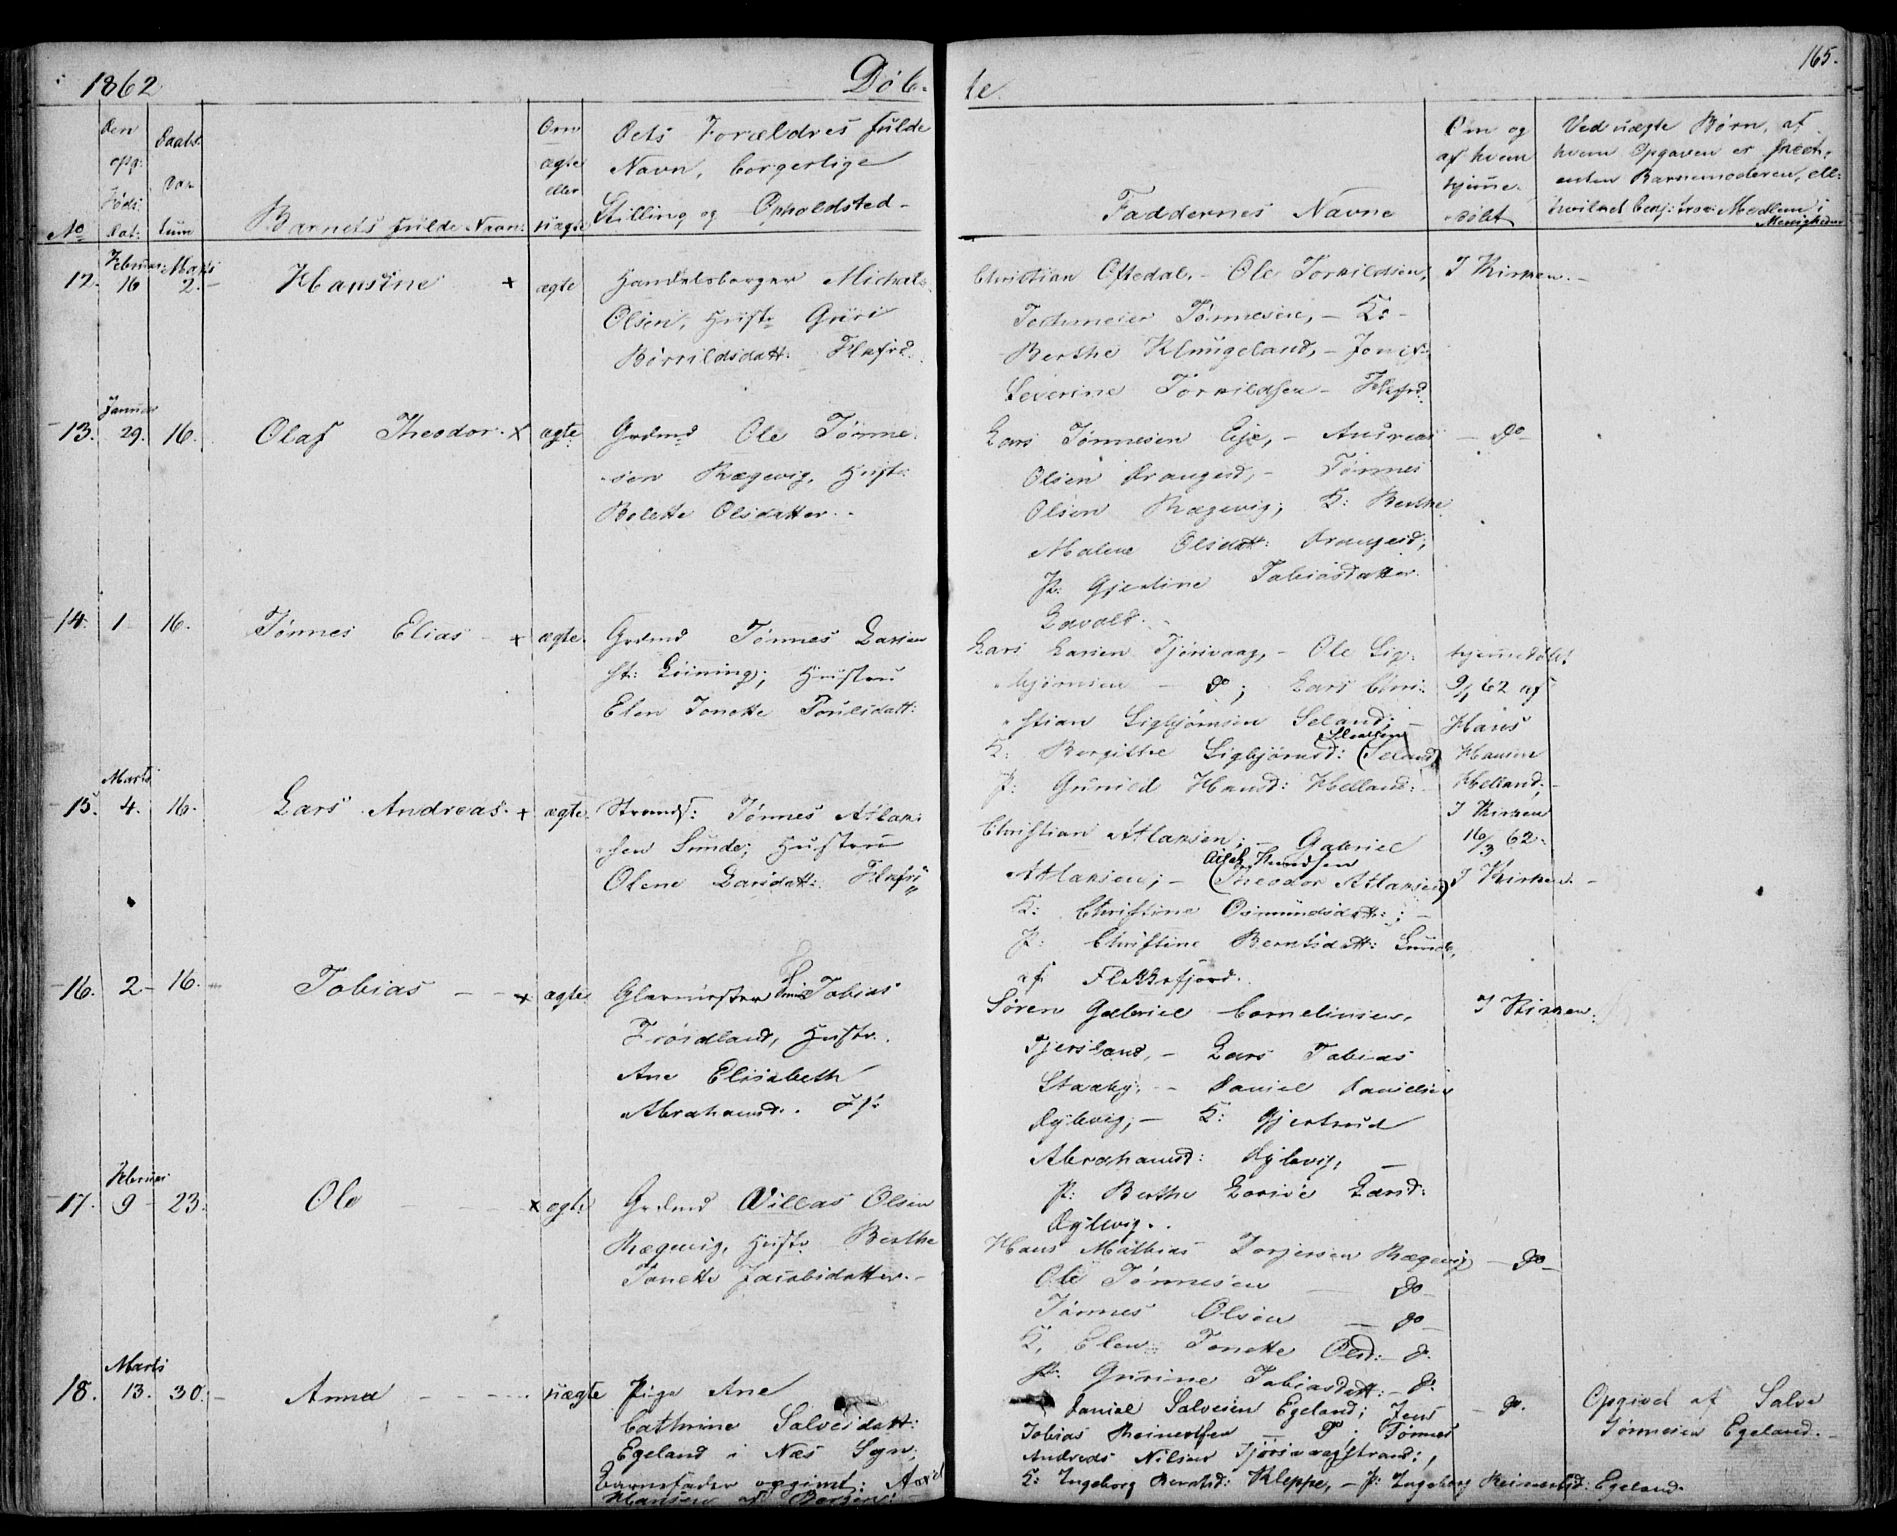 1862 Døb-
te
165.
No
Den opg: Føds: dat:
Daabs Datum
Barnets fulde Navn
Om ægte eller uægte
Dets Forældres fulde Navn, borgerlige Stilling og Opholdsted
Faddernes Navne
Om og af hvem hjemme døbt
Ved uægte Børn, af hvem Opgaven er skeet, enten Barnemoderen, ell: hvilket Medlem i Menigheden
12. Februar 16 Marts 2. Hansine x ægte
Handelsborger Michael
Olsen, Hustr Guri
Børrildsdatt: Flkfrd.
Christian Oftedal, - Ole Torkildsen,
Jochumsen Tønnesen, - K:
Berthe Klungeland, - Jomf:
Severine Torkildsen - Flkfrd.
I Kirken. -
13. Januar 29. 16. Olaf Theodor. x ægte
Grdmd Ole Tønne-
sen Rægevig, Hustr:
Bolette Olsdatter. -
Lars Tønnesen Eje, - Andreas
Olsen Drangeid, - Tønnes
Olsen Rægevig; K: Berthe
Malene Olsdatt: Drangeid;
P: Gjertine Tobiasdatter
Lavold. -
- do -
14. 1 16. Tønnes Elias x ægte.
Grdmd Tønnes Larsen
Løining; Hustru
Elen Tonette Poulsdatt:
Lars Larsen Tjørsvaag, - Ole Sig-
bjørnsen - do; Lars Chri-
stian Sigbjørnsen Seland; -
K: Bergitte Sigbjørnsd: (Seland)
P: Guried Hansd: Helland: -
hjemmedøbt
9/1 62 af
Hans
Hansen
Helland;
I Kirken
16/3 62.
15. Marts 4. 16. Lars Andreas. x ægte
Strands: Tønnes Atlak-
sen Sunde; Hustru
Olene Larsdatt: Flkfrd
Christian Atlaksen; - Gabriel
Atlaksen; - (Theodor Atlaksen)
K: Christine Osmundsdatt: ; -
P: Christine Berntsdatt: Sunde,
af Flekkefjord.
I Kirken. -
16. 2 - 16. Tobias - - x ægte
Glarmester Tobias
Frøidland, Hustr.
Ane Elisabeth
Abrahamsd:
Søren Gabriel Corneliusen,
Fjersland, - Lars Tobias
Stakby, - Daniel Danielsen
Dybvig, - K: Gjertrud
Abrahamsd: Dybvig, -
P: Berthe Lovise Larsd:
Dybvig. .
I Kirken.
17. Februar 9 - 23. Ole - - - x ægte
Grdmd Villas Olsen
Rægevig, Hustr Berthe
Tonette Jacobsdatter. -
Hans Mathias Torjersen Rægevig
Ole Tønnesen - do -
Tønnes Olsen - do -
K. Elen Tonette Olsd: - do
P: Gurine Tobiasdatt: - do
- do -
18. Marts 13. 30. - Anna - - - uægte
Pige Ane
Cathrine Salvesdatt:
Egeland i Næs Sogn,
Barnefader opgivet: Axel
Hansen af Bergen: -
Daniel Salvesen Egeland; Jens
Tobias Reinertsen - do; Tønnes
Andreas Nilsen Tjørsvaagstrand;
K: Ingeborg Berntsd: Kleppe, - P: Ingeborg Reinertsd: Egeland.
- do.
Opgivet af Salve
Tønnesen Egeland. -